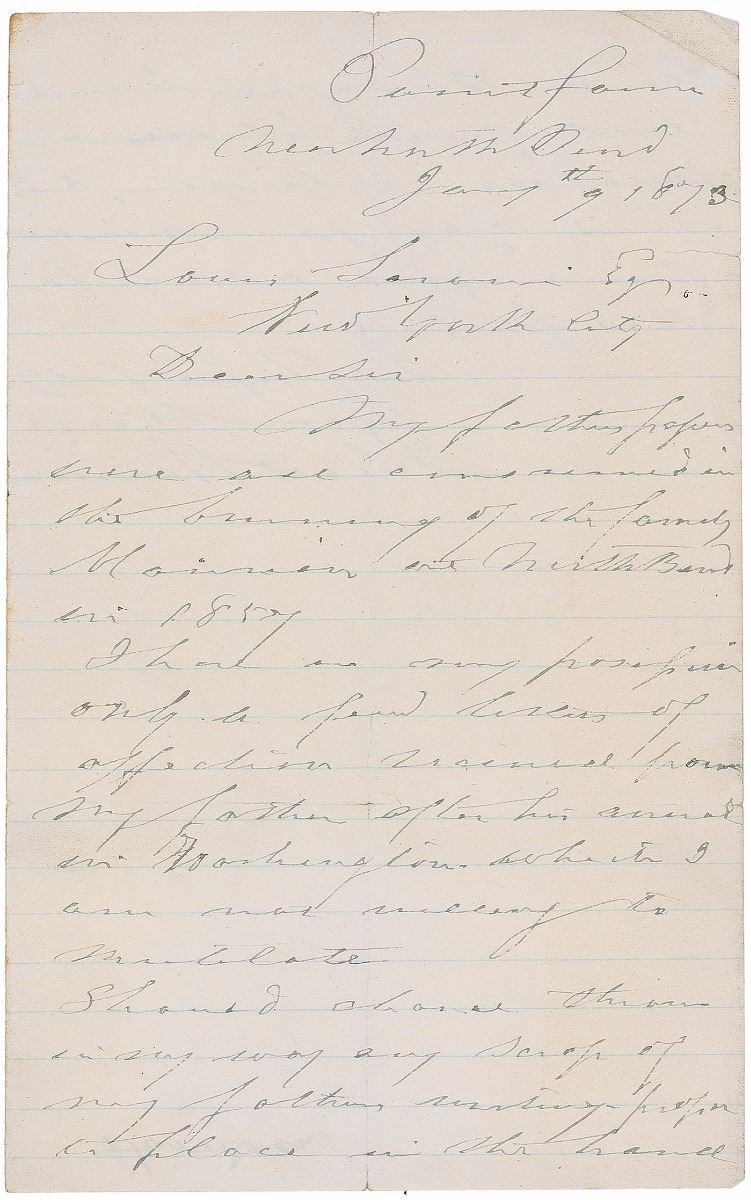 Point farm
Near North Bend
Jany 9th 1873
Louis Esqr.
New York City
Dear Sir
My fathers papers
were all consumed in
the burning of the family
Mansion at North Bend
in 1857
I have in my possession
only a few letters of
affection received from
my father after his arrival
in Washington which I
am not willing to
mutilate
Should chance throw
in my way any scrap of
my fathers writing proper
to place in the hand